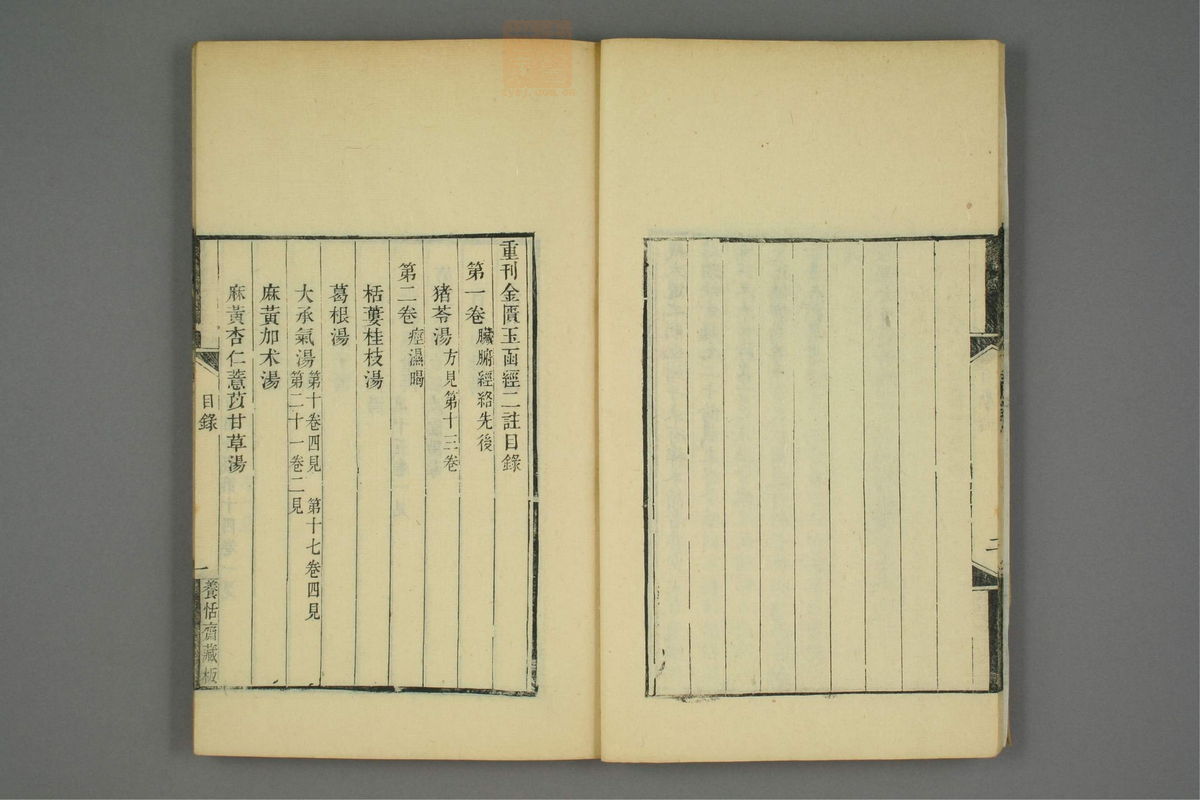 二
重刊金匱玉函經二註目錄
第一卷 臟腑經絡先後
猪苓湯 方見第十三卷
第二卷 痙濕暍
栝蔞桂枝湯
葛根湯
大承氣湯 第十卷四見 第十七卷四見
第二十一卷二見
麻黃加术湯
麻黃杏仁薏苡甘草湯
目錄
一
養恬齋藏板